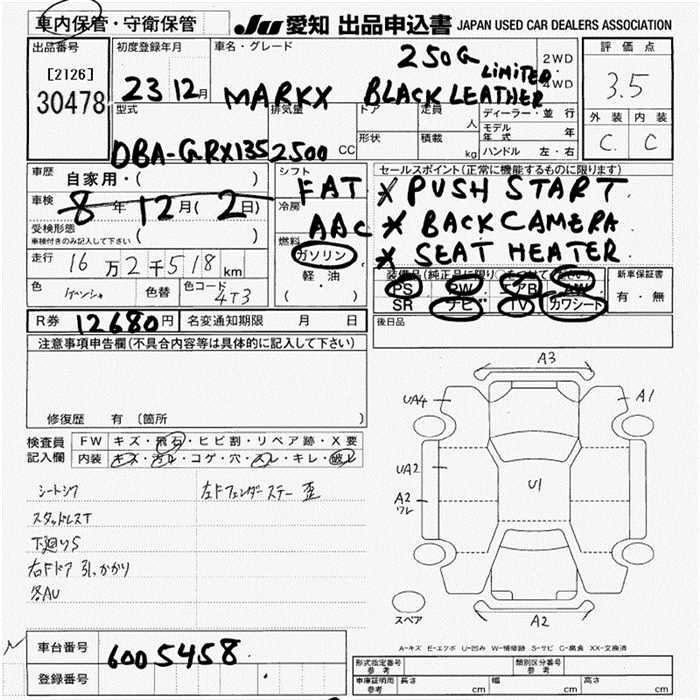 車内保管・守衛保管
JU 愛知 出品申込書 JAPAN USED CAR DEALERS ASSOCIATION
出品番号
[2126]
30478
初度登録年月
23 12月
車名・グレード
MARKX 250G LIMITED
BLACK LEATHER
2WD
4WD
評価点
3.5
外装 内装
C C
型式
DBA-GRX135
排気量
2500 CC
ドア 定員 人
形状 積載 kg
ディーラー・並行
モデル年式 年
ハンドル 左・右
車歴
自家用・( )
車検
8年12月(2日)
受検形態
車検付きのみ記入して下さい ( )
走行
16万2千518km
色
色替
色コード
4T3
シフト
FAT
冷房
AAC
燃料
ガソリン
軽・油
( )
セールスポイント(正常に機能するものに限ります)
* PUSH START
* BACK CAMERA
* SEAT HEATER
PS PW AB AW
SR ナビ TV カワシート
新車保証書
有・無
後日品
R券 12680円
名変通知期限 月 日
注意事項申告欄(不具合内容等は具体的に記入して下さい)
修復歴 有 〔箇所 〕
検査員
記入欄
FW キズ・飛石・ヒビ割・リペア跡・X要
内装 キズ・汚レ・コゲ・穴・スレ・キレ・破レ
シートシワ 左Fフェンダーステー歪
スタッドレスT
下廻りS
右Fドア引っかかり
各AU
A3
UA4
A1
UA2
U1
A2
ワレ
A2
スペア
A-キズ E-エクボ U-凹み W-補修跡 S-サビ C-腐食 XX-交換済
車台番号
6005458
登録番号
型式指定番号
参考
類別区分番号
参考
車庫証明用
参考
長さ cm 幅 cm 高さ cm